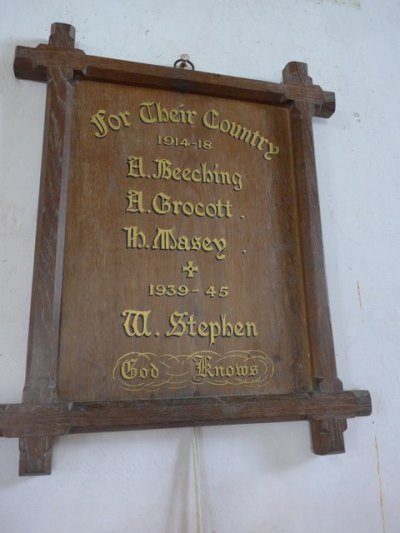 For Their Country
1914-18
A. Beeching
A. Grocott.
H. Masey.
1939-45
W. Stephen
God Knows